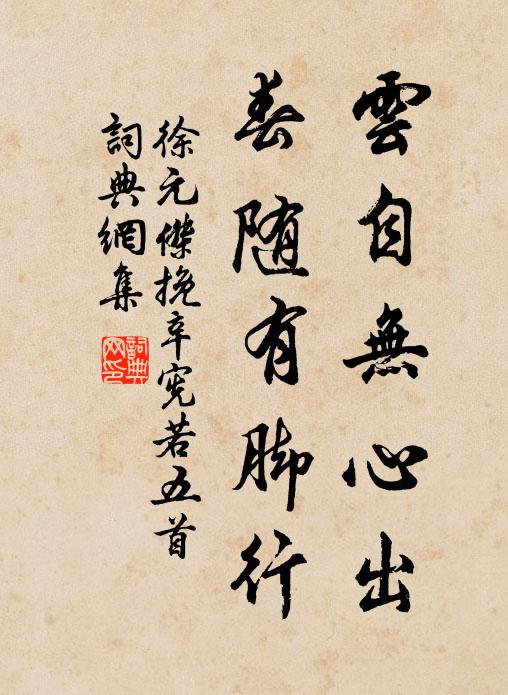 雲自無心出
春随有脚行
徐元傑挽辛宪若五首
詞典網集
詞典网印